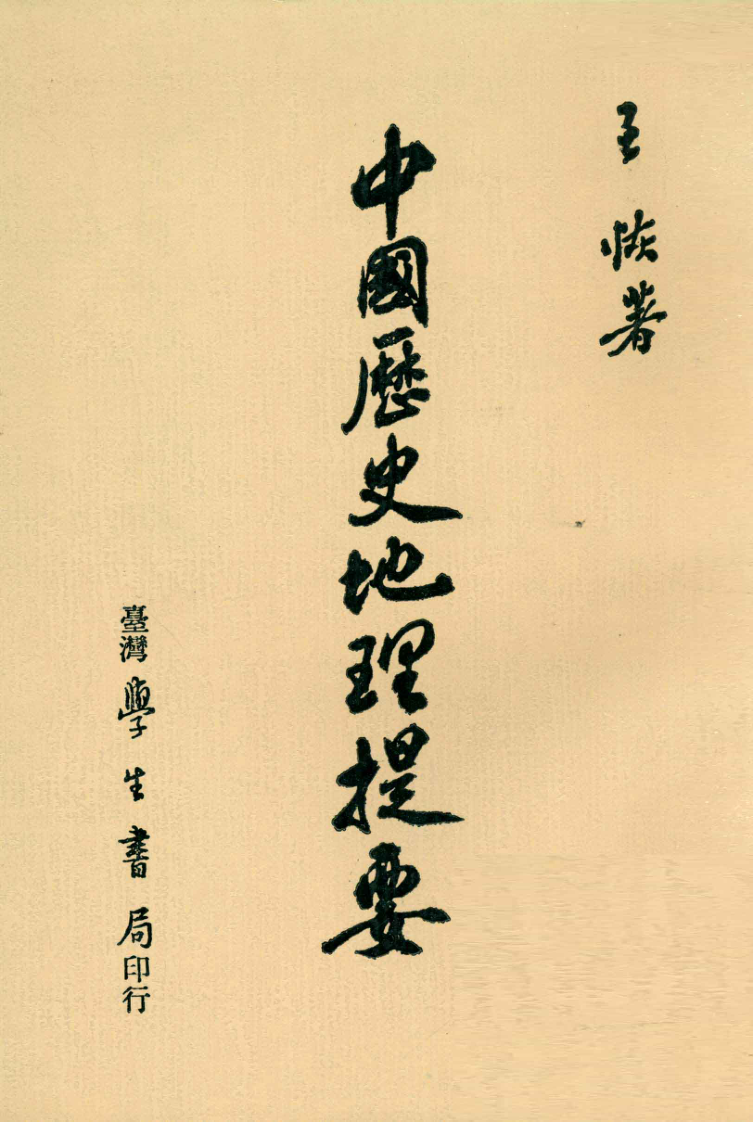 王恢著
中國歷史地理提要
臺灣學生書局印行